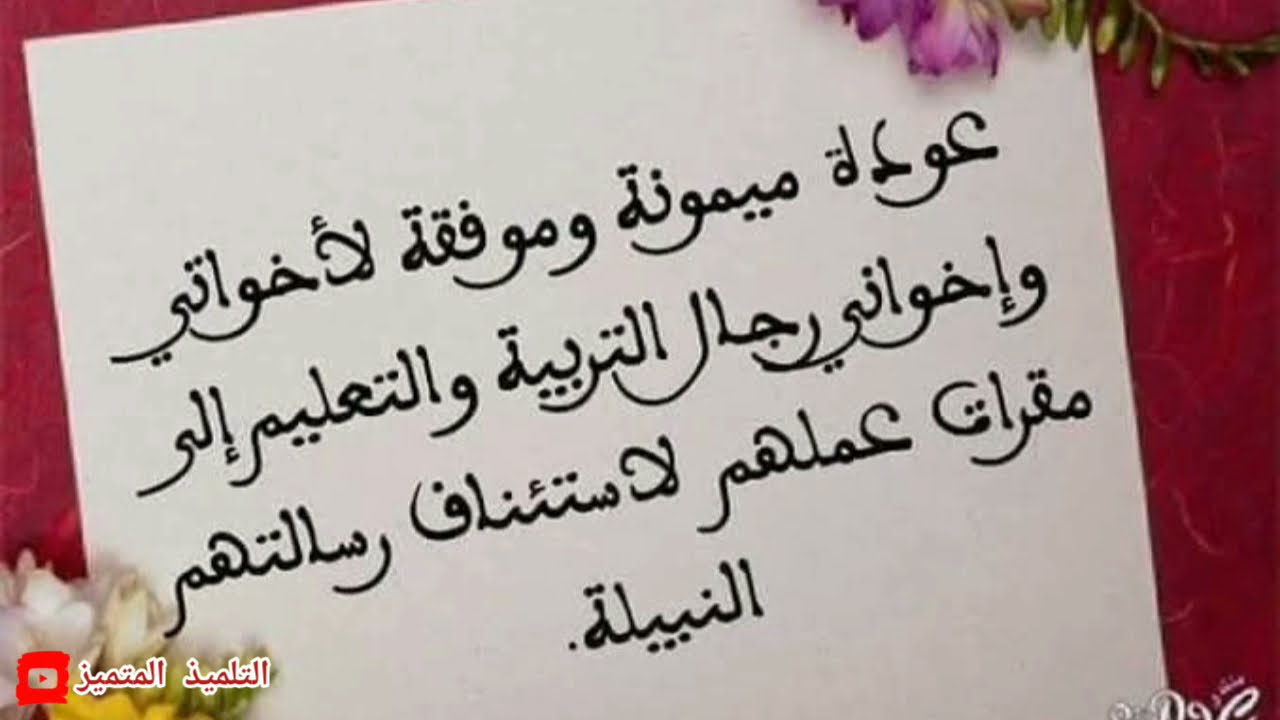 عودة ميمونة وموفقة لأخواتي
وإخواني رجال التربية والتعليم إلى
مقرات عملهم لاستئناف رسالتهم
النبيلة.
التلميذ المتميز
منتدى